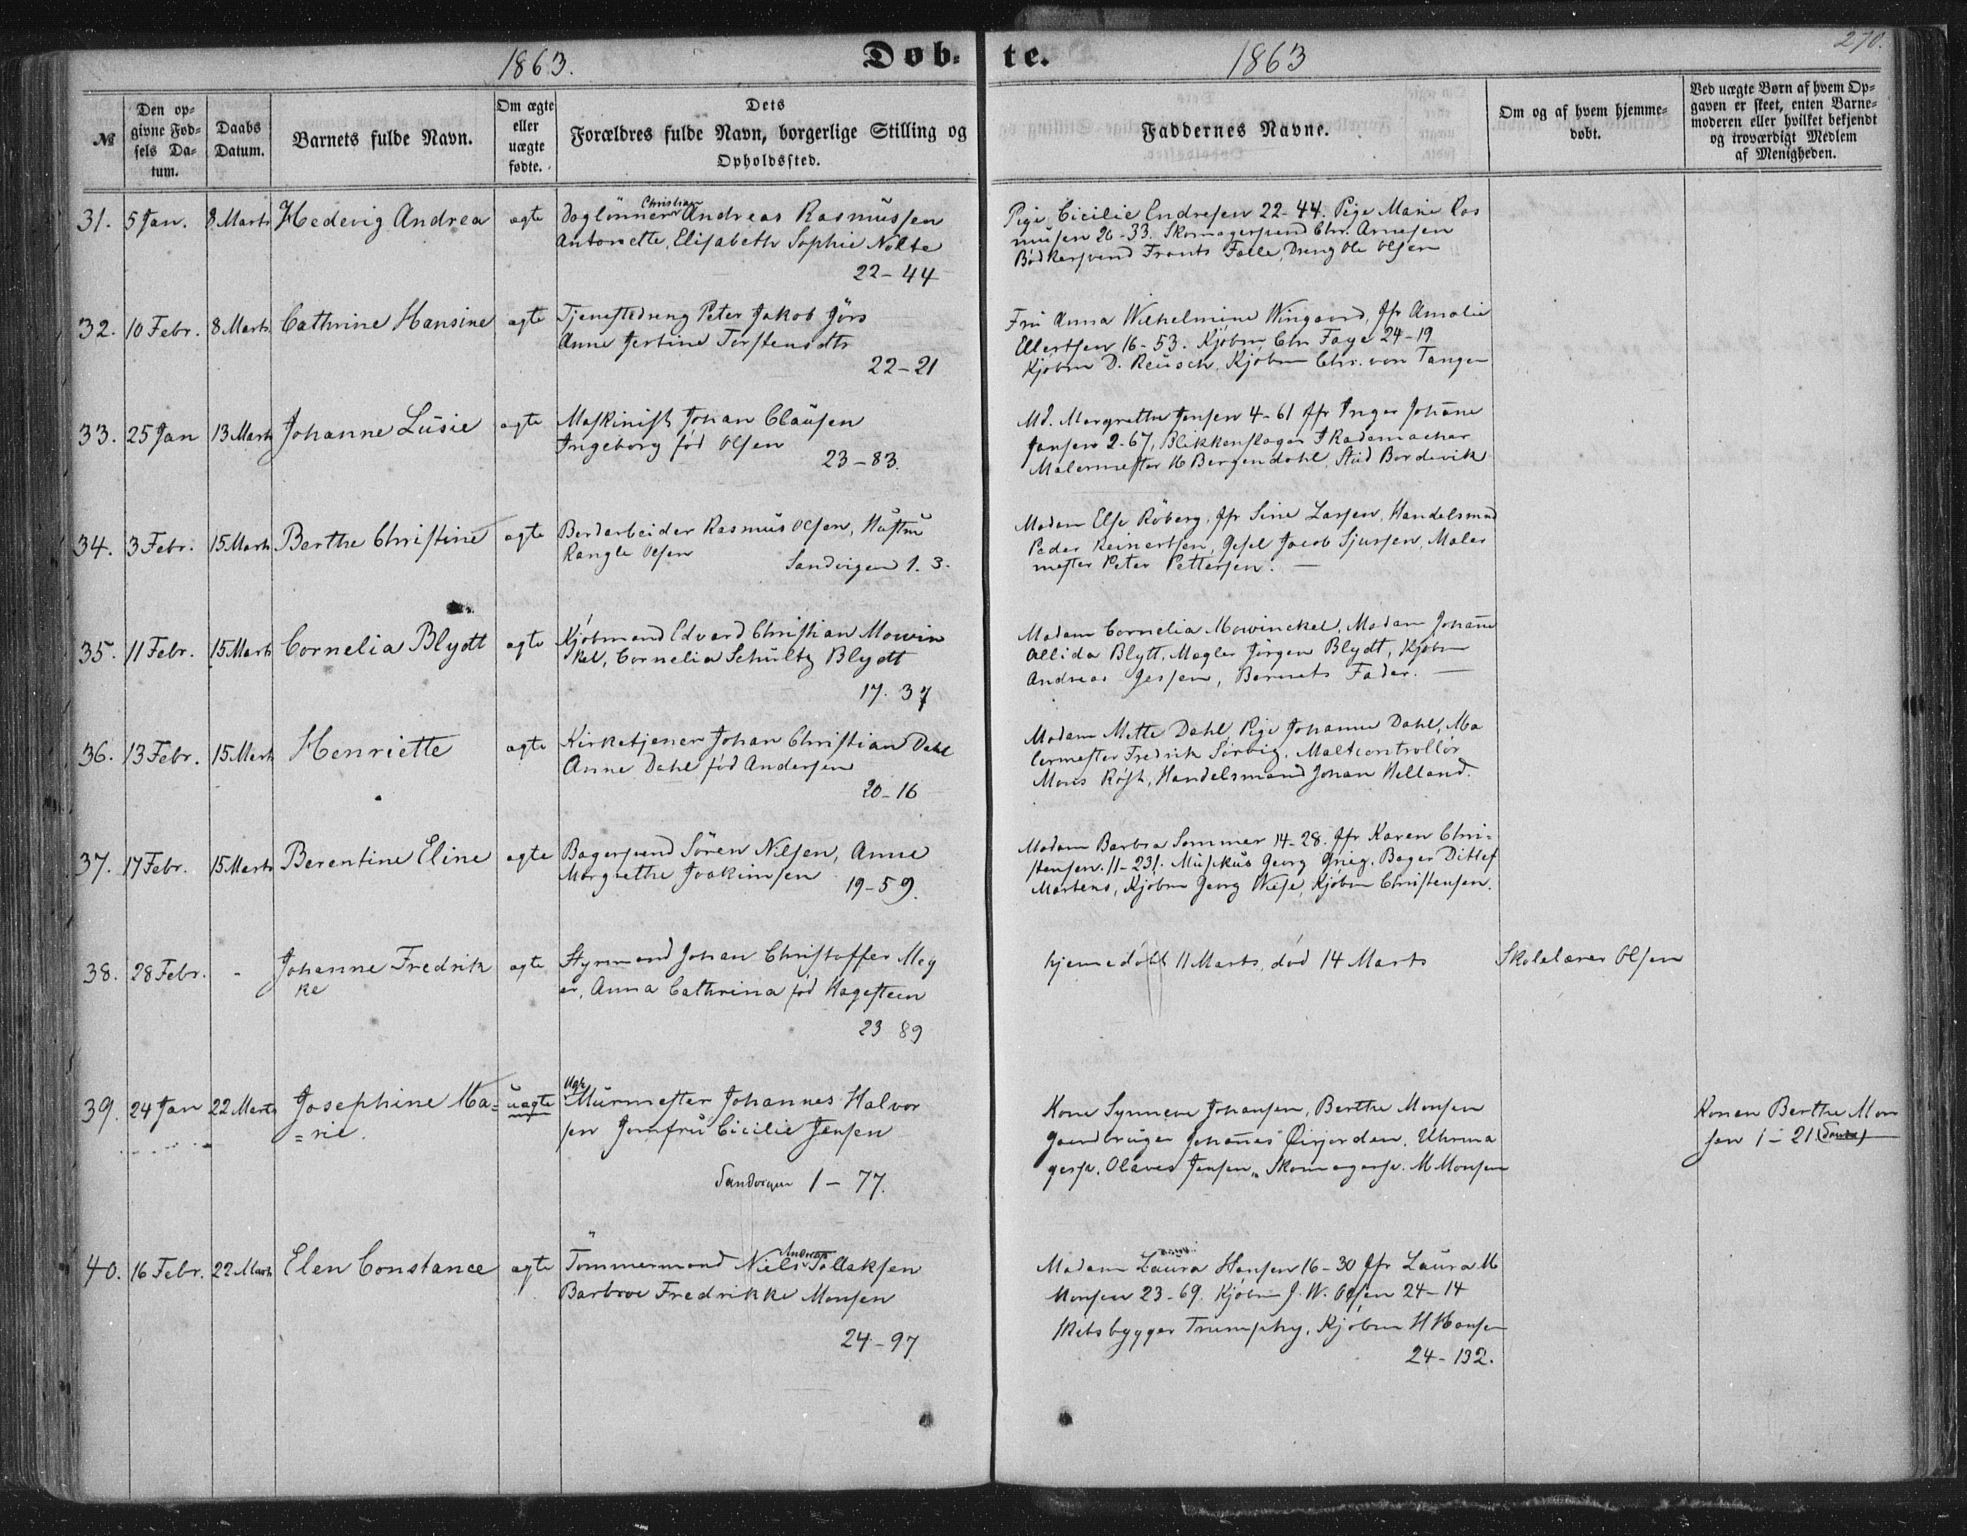 1863. Døb- te. 1863 270.
№
Den opgivne Fødsels Datum.
Daabs Datum.
Barnets fulde Navn.
Om ægte eller uægte fødte.
Dets Forældres fulde Navn, borgerlige Stilling og Opholdssted.
Faddernes Navne.
Om og af hvem hjemmedøbt.
Ved uægte Børn af hvem Opgaven er skeet, enten Barnemoderen eller hvilket bekjendt og troværdigt Medlem af Menigheden.
31. 5 Jan. 8 Marts Hedevig Andrea ægte Daglønner Christian Andreas Rasmussen
Antonette, Elisabeth Sophie Nolte
22-44
Pige Cicilie Endresen 22-44. Pige Marie Ras
musen 26-33. Skomagersvend Chr. Arnesen
Bødkersvend Frants Falle, Dreng Ole Olsen
32. 10 Febr. 8 Marts Cathrine Hansine ægte Tjenestedreng Peter Jakob Jörs
Anne Jertine Torstensdtr
22-21
Fru Anna Wilhelmine Wingaard, Jfr Amalie
Ellertsen 16-53. Kjøbm Chr Faye 24-19
Kjøbm D. Reusch, Kjøbm Chr. von Tangen
33. 25 Jan 13 Marts Johanne Lusie ægte Maskinist Johan Clausen
Ingeborg fød Olsen
23-83.
Md. Margrethe Jensen 4-61 Jfr Inger Johane
Jansen 2-67, Blikkenslager Rademacher
Malermester Bergendahl, Stud Bordevik
34. 3 Febr. 15 Marts Berthe Christine ægte Bordarbeider Rasmus Olsen, Hustru
Rangle Olsen
Sandvigen 1. 3.
Madam Else Röberg, Jfr Sine Larsen, Handelsmd
Peder Reinertsen, Gesel Jacob Sjursen, Maler
mester Peter Pettersen.
35. 11 Febr. 15 Marts Cornelia Blydt ægte Kjøbmand Edvard Christian Mowin
kel, Cornelia Schultz Blydt
17. 37
Madam Cornelia Mowinckel, Madam Johane
Allida Blytt, Mægler Jörgen Blydt, Kjøbm
Andreas Jessen, Barnets Fader.
36. 13 Febr. 15 Marts Henriette ægte Kirketjener Johan Christian Dahl
Anne Dahl fød Andersen
20-16
Madam Mette Dahl, Pige Johanne Dahl, Ma
lermester Fredrik Sörvig, Maltcontrollör
Mons Röst, Handelsmand Johan Helland.
37. 17 Febr. 15 Marts Berentine Eline ægte Bagersvend Sören Nilsen, Anne
Margrethe Joakimsen
19-59.
Madam Barbra Sommer 14-28. Jfr Karen Chri-
stensen. 11-231. Musikus Georg Grieg, Bager Ditlef
Martens, Kjøbm Georg Wiese, Kjøbm Christensen.
38. 28 Febr. - Johanne Fredrik
ke
ægte Styrmand Johan Christoffer Mey
er, Anna Cathrina fød Hagesteen
23 89
hjemedöbt 11 Marts, død 14 Marts Skolelærer Olsen
39. 24 Jan 22 Marts Josephine Ma-
=rie.
uægte Ugk Murmester Johannes Halvor
sen Jomfru Cicilie Jensen
Sandvigen 1-77.
Kone Synneve Johansen, Berthe Monsen
Gaardbruger Johanes Öirjorden, Uhrma
gersv. Olaves Jensen, Skomagersv. M Monsen
Konen Berthe Mon
sen 1-21
40. 16 Febr. 22 Marts Elen Constance ægte Tömmermand Niels Andreas Tollaksen
Barbroe Fredrikke Monsen
24-97
Madam Laura Hansen 16-30 Jfr Laura M
Monsen 23-69. Kjøbm J. W. Olsen 24-14
Skibsbygger Trumphy, Kjøbm H Hansen
24-132.